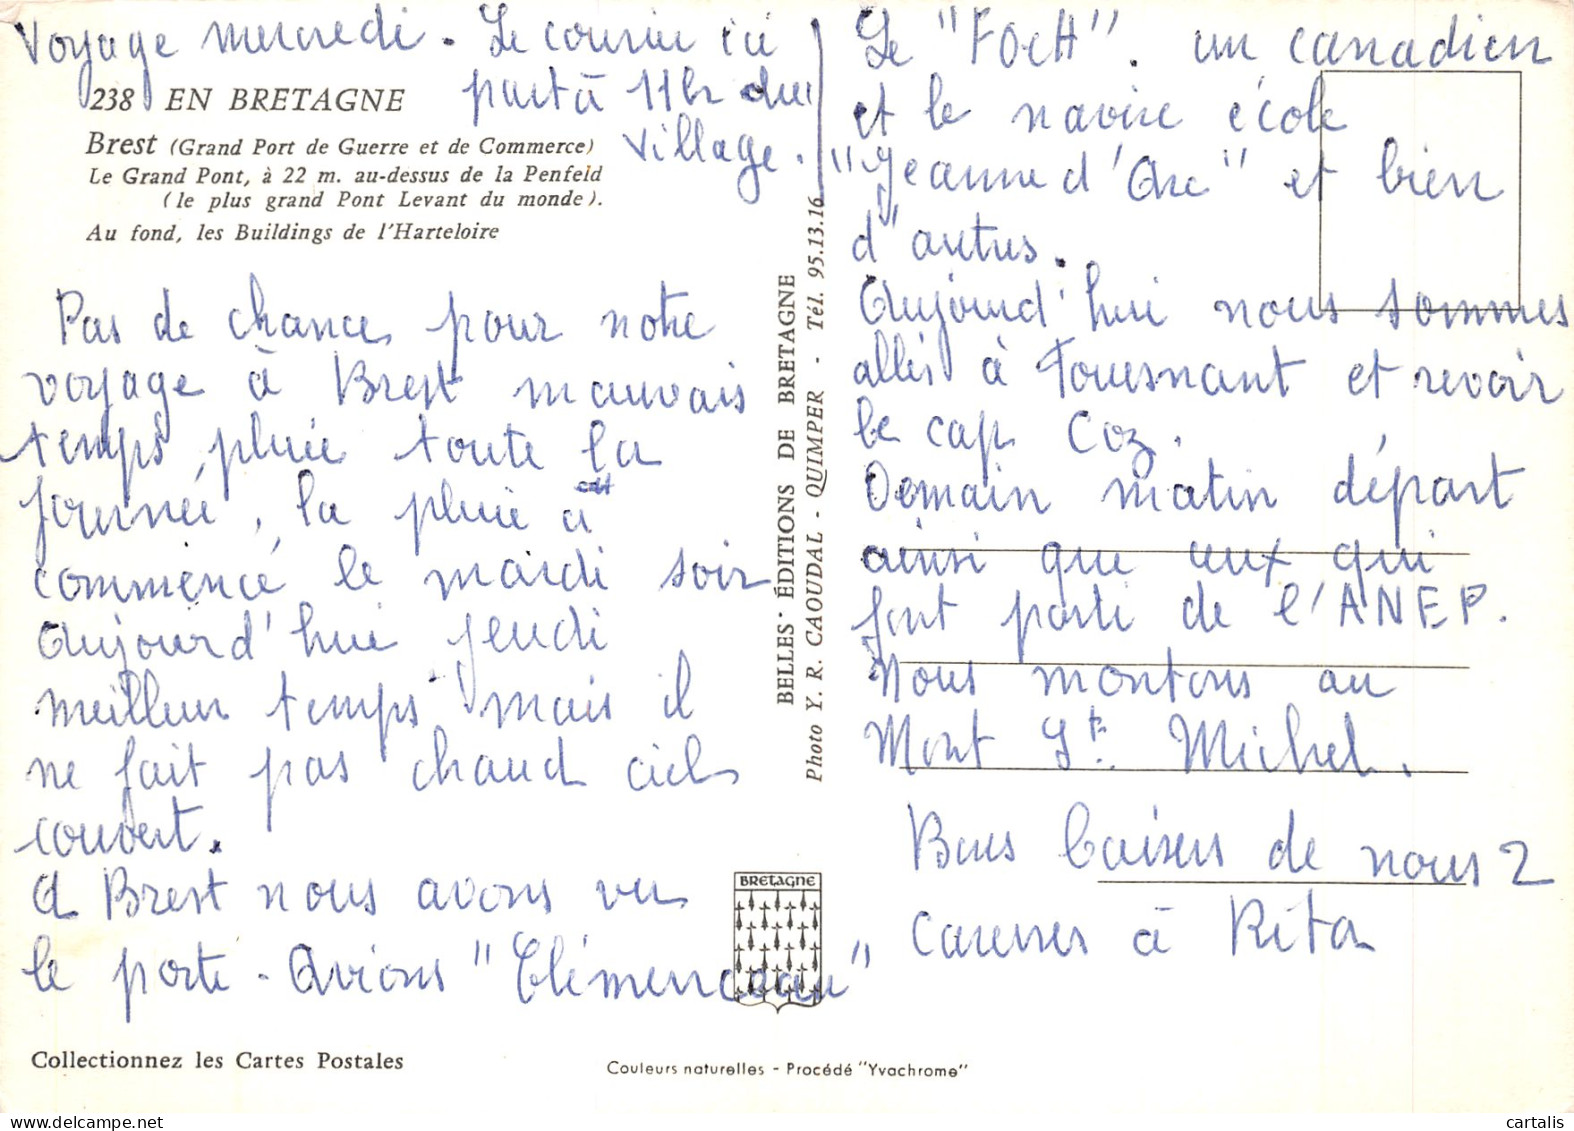 Voyage mercredi. Le courrier ici
part à 11h du
village.
238 EN BRETAGNE
Brest (Grand Port de Guerre et de Commerce)
Le Grand Pont, à 22 m. au-dessus de la Penfeld
(le plus grand Pont Levant du monde).
Au fond, les Buildings de l'Harteloire
Pas de chance pour notre
voyage à Brest mauvais
temps, pluie toute la
journée, la pluie a
commencé le mardi soir
Aujourd'hui jeudi
meilleur temps mais il
ne fait pas chaud ciel
couvert.
A Brest nous avons vu
le porte-Avions "Clémenceau"
Le "FOCH". un canadien
et le navire école
"Jeanne d'Arc" et bien
d'autres.
Aujourd'hui nous sommes
allés à Fouesnant et revoir
le cap Coz.
Demain matin départ
ainsi que ceux qui
font partie de l'ANEP.
Nous montons au
Mont St. Michel.
Bons baisers de nous 2
caresses à Rita
BELLES ÉDITIONS DE BRETAGNE
Photo Y. R. CAOUDAL - QUIMPER - Tél. 95.13.16
BRETAGNE
Collectionnez les Cartes Postales
Couleurs naturelles - Procédé "Yvachrome"
cartalis